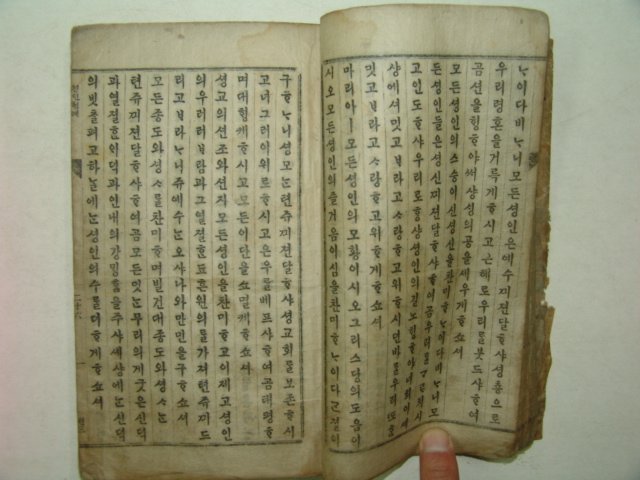 ᄂᆞ이다 비ᄂᆞ니 모든 셩인은 예수끠 젼달ᄒᆞ샤 셩춍으로
우리 령혼을 거륵게 ᄒᆞ시고 은혜로 우리를 붓드샤 ᄒᆞ여
곰 션을 힝ᄒᆞ야써 샹셩의 공을 세우게 ᄒᆞ쇼셔
모든 셩인의 스승이신 셩신을 찬미ᄒᆞᄂᆞ이다 비ᄂᆞ니 모
든 셩인들은 셩신끠 젼달ᄒᆞ샤 ᄒᆞ여곰 우리를 ᄀᆞᄅᆞ치시
고 인도ᄒᆞ샤 우리로 ᄒᆞᆼ샹 셩인의
샹에셔 밋고 ᄇᆞ라고 ᄉᆞ랑ᄒᆞ고 위ᄒᆞ시던 바를 우리 ᄯᅩᄒᆞᆫ
밋고 ᄇᆞ라고 ᄉᆞ랑ᄒᆞ고 위ᄒᆞ게 ᄒᆞ쇼셔
마리아ㅣ 모든 셩인의 모황이시오 그리스당의 도음이
시오 모든 셩인의 즐거움이심을 찬미ᄒᆞᄂᆞ이다
구ᄒᆞᄂᆞ니 셩모ᄂᆞᆫ 텬쥬끠 젼달ᄒᆞ샤 셩교회를 보존ᄒᆞ시
고 녀그러이 위로ᄒᆞ시고 은우를 베프샤 ᄒᆞ여곰 태평ᄒᆞ
며 대힝케 ᄒᆞ시고 모든 이단을 쇼멸케 ᄒᆞ쇼셔
셩교의 션조와 션지 모든 셩인을 찬미ᄒᆞ고 이제 고 셩인
의 우러러 ᄇᆞ람과 그 열졀ᄒᆞᆫ 원의를 가져 텬쥬끠 드
리고 ᄇᆞ라ᄂᆞ니 쥬 예수ᄂᆞᆫ 오샤 나와 만민을 구ᄒᆞ쇼셔
모든 종도와 셩ᄉᆞ를 찬미ᄒᆞ며 빌건대 종도와 셩ᄉᆞᄂᆞᆫ
텬쥬끠 젼달ᄒᆞ샤 ᄒᆞ여곰 모든 밋ᄂᆞᆫ 무리의게 굿은 신덕
과 열졀ᄒᆞᆫ 이덕과 인내의 강밍ᄒᆞᆷ을 주샤 셰샹에ᄂᆞᆫ 션덕
의 빗츨 펴고 하ᄂᆞᆯ에ᄂᆞᆫ 셩인의 수를 더ᄒᆞ게 ᄒᆞ쇼셔
二十六